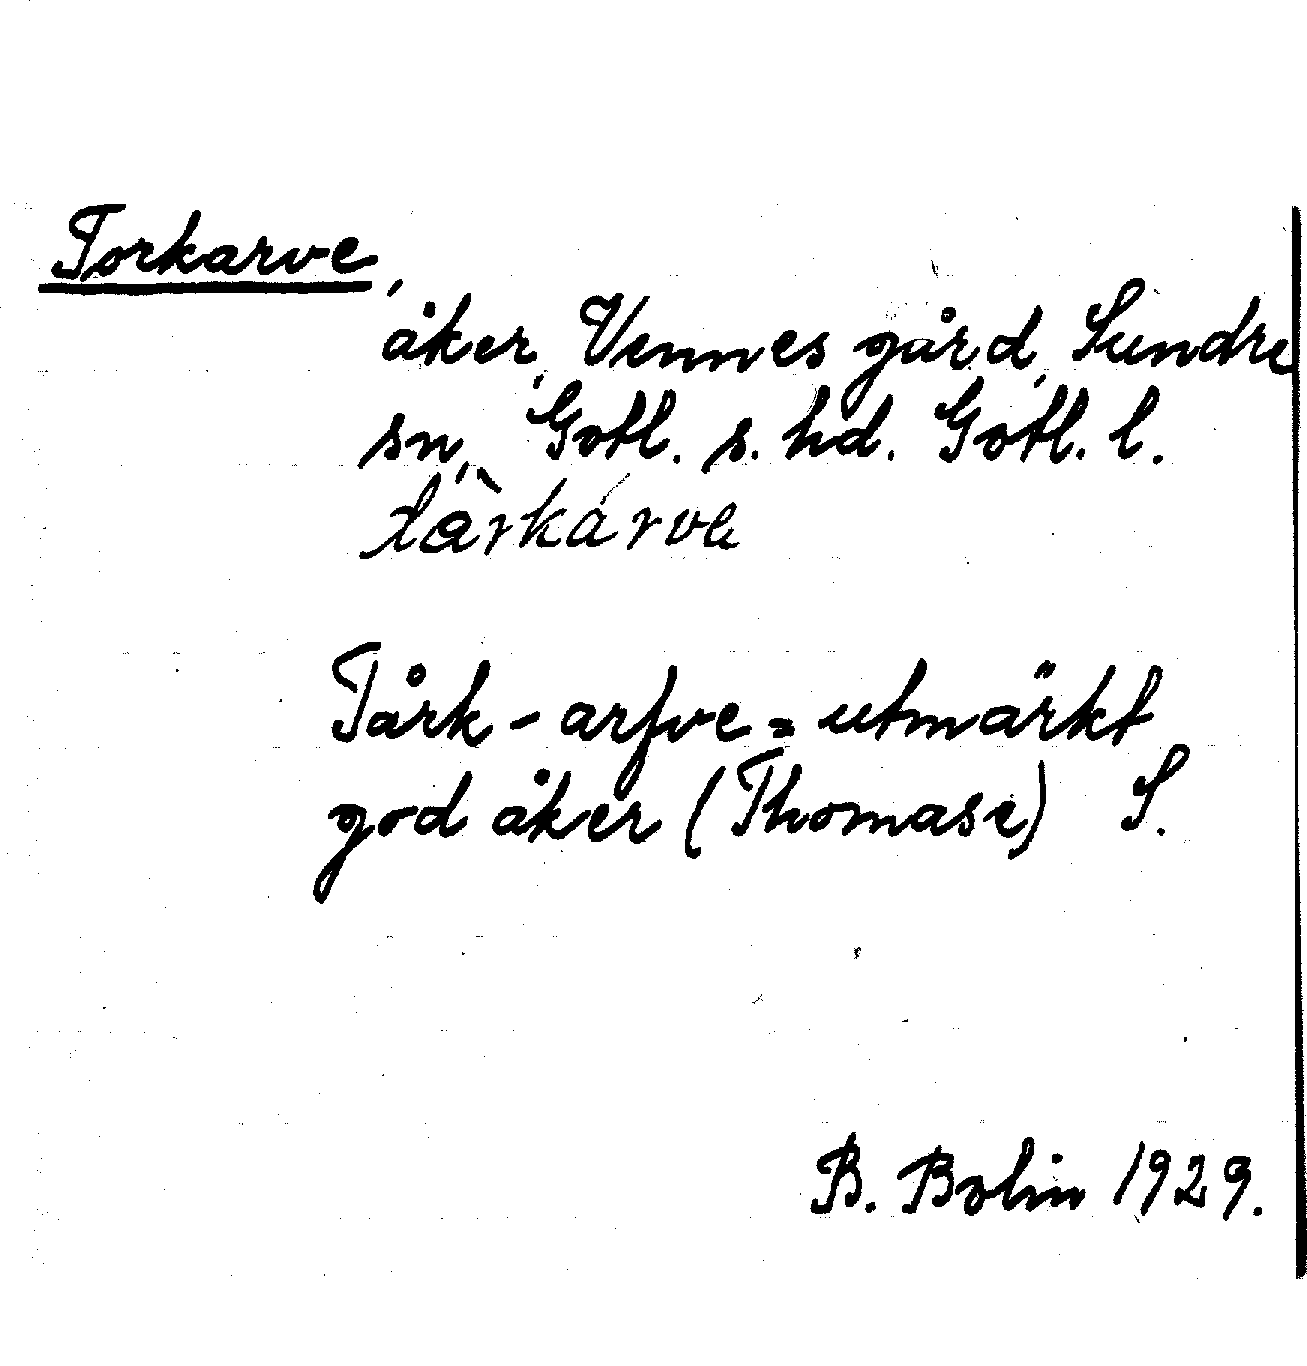 Torkarve,
åker, Vennes gård, Sundre
sn, Gotl. s. hd. Gotl. l.
tàrkárve
Tårk - arfve = utmärkt
god åker (Thomase) S.
B. Bolin 1929.